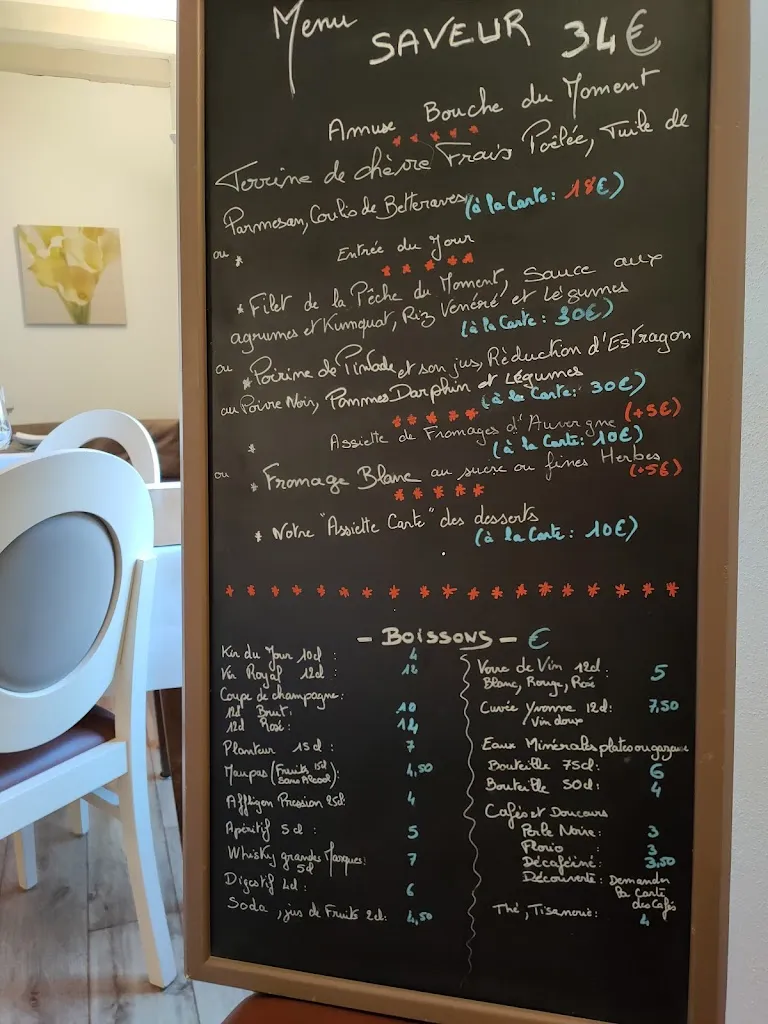 Menu SAVEUR 34€
Amuse Bouche du Moment
*****
Terrine de chèvre Frais Poêlée, Tuile de
Parmesan, Coulis de Betteraves (à la Carte: 18€)
ou * Entrée du Jour
*****
* Filet de la Pêche du Moment, Sauce aux
agrumes et Kumquat, Riz Vénéré et légumes
(à la Carte: 30€)
ou * Poitrine de Pintade et son jus, Réduction d'Estragon
au Poivre Noir, Pommes Darphin et Légumes
(à la Carte: 30€)
*****
* Assiette de Fromages d'Auvergne (+5€)
(à la Carte: 10€)
ou * Fromage Blanc au sucre ou fines Herbes
(+5€)
*****
* Notre "Assiette Carte" des desserts
(à la Carte: 10€)
*******************
- BOISSONS - €
Kir du Jour 10cl : 4
Kir Royal 12cl : 12
Coupe de champagne:
12cl Brut: 10
12cl Rosé: 14
Planteur 15cl : 7
(Fruits 15cl
Sans Alcool): 4,50
Affligen Pression 25cl: 4
Apéritif 5cl : 5
Whisky grandes Marques: 7
5cl
Digestif 4cl : 6
Soda, jus de Fruits 2cl: 4,50
Verre de Vin 12cl: 5
Blanc, Rouge, Rosé
Cuvée Yvonne 12cl: 7,50
Vin doux
Eaux Minérales plates ou gazeuse
Bouteille 75cl: 6
Bouteille 50cl: 4
Cafés et Douceurs
Perle Noire: 3
Florio : 3
Décaféiné: 3,50
Découverte: Demander
la Carte
des Cafés
Thé, Tisanerie: 4